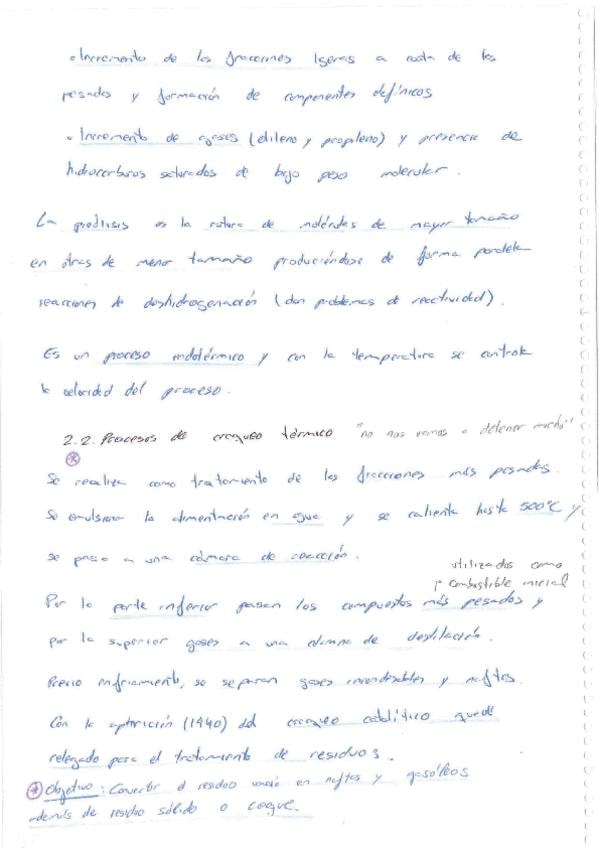 • Incremento de las fracciones ligeras a costa de las
pesadas y formación de componentes olefínicos
• Incremento de gases (etileno y propileno) y presencia de
hidrocarburos saturados de bajo peso molecular.
La pirólisis es la rotura de moléculas de mayor tamaño
en otras de menor tamaño produciéndose de forma paralela
reacciones de deshidrogenación (dan problemas de reactividad).
Es un proceso endotérmico y con la temperatura se controla
la velocidad del proceso.
2.2. Procesos de craqueo térmico "no nos vamos a detener mucho"
Se realiza como tratamiento de las fracciones más pesadas.
Se emulsiona la alimentación en agua y se calienta hasta 500°C y
se pasa a una cámara de reacción.
utilizados como
combustible inicial
Por la parte inferior pasan los compuestos más pesados y
por la superior gases a una columna de destilación.
Previo enfriamiento, se separan gases incondensables y naftas.
Con la aparición (1940) del craqueo catalítico quedó
relegado para el tratamiento de residuos.
* Objetivo: Convertir el residuo vacío en naftas y gasóleos
además de residuo sólido o coque.